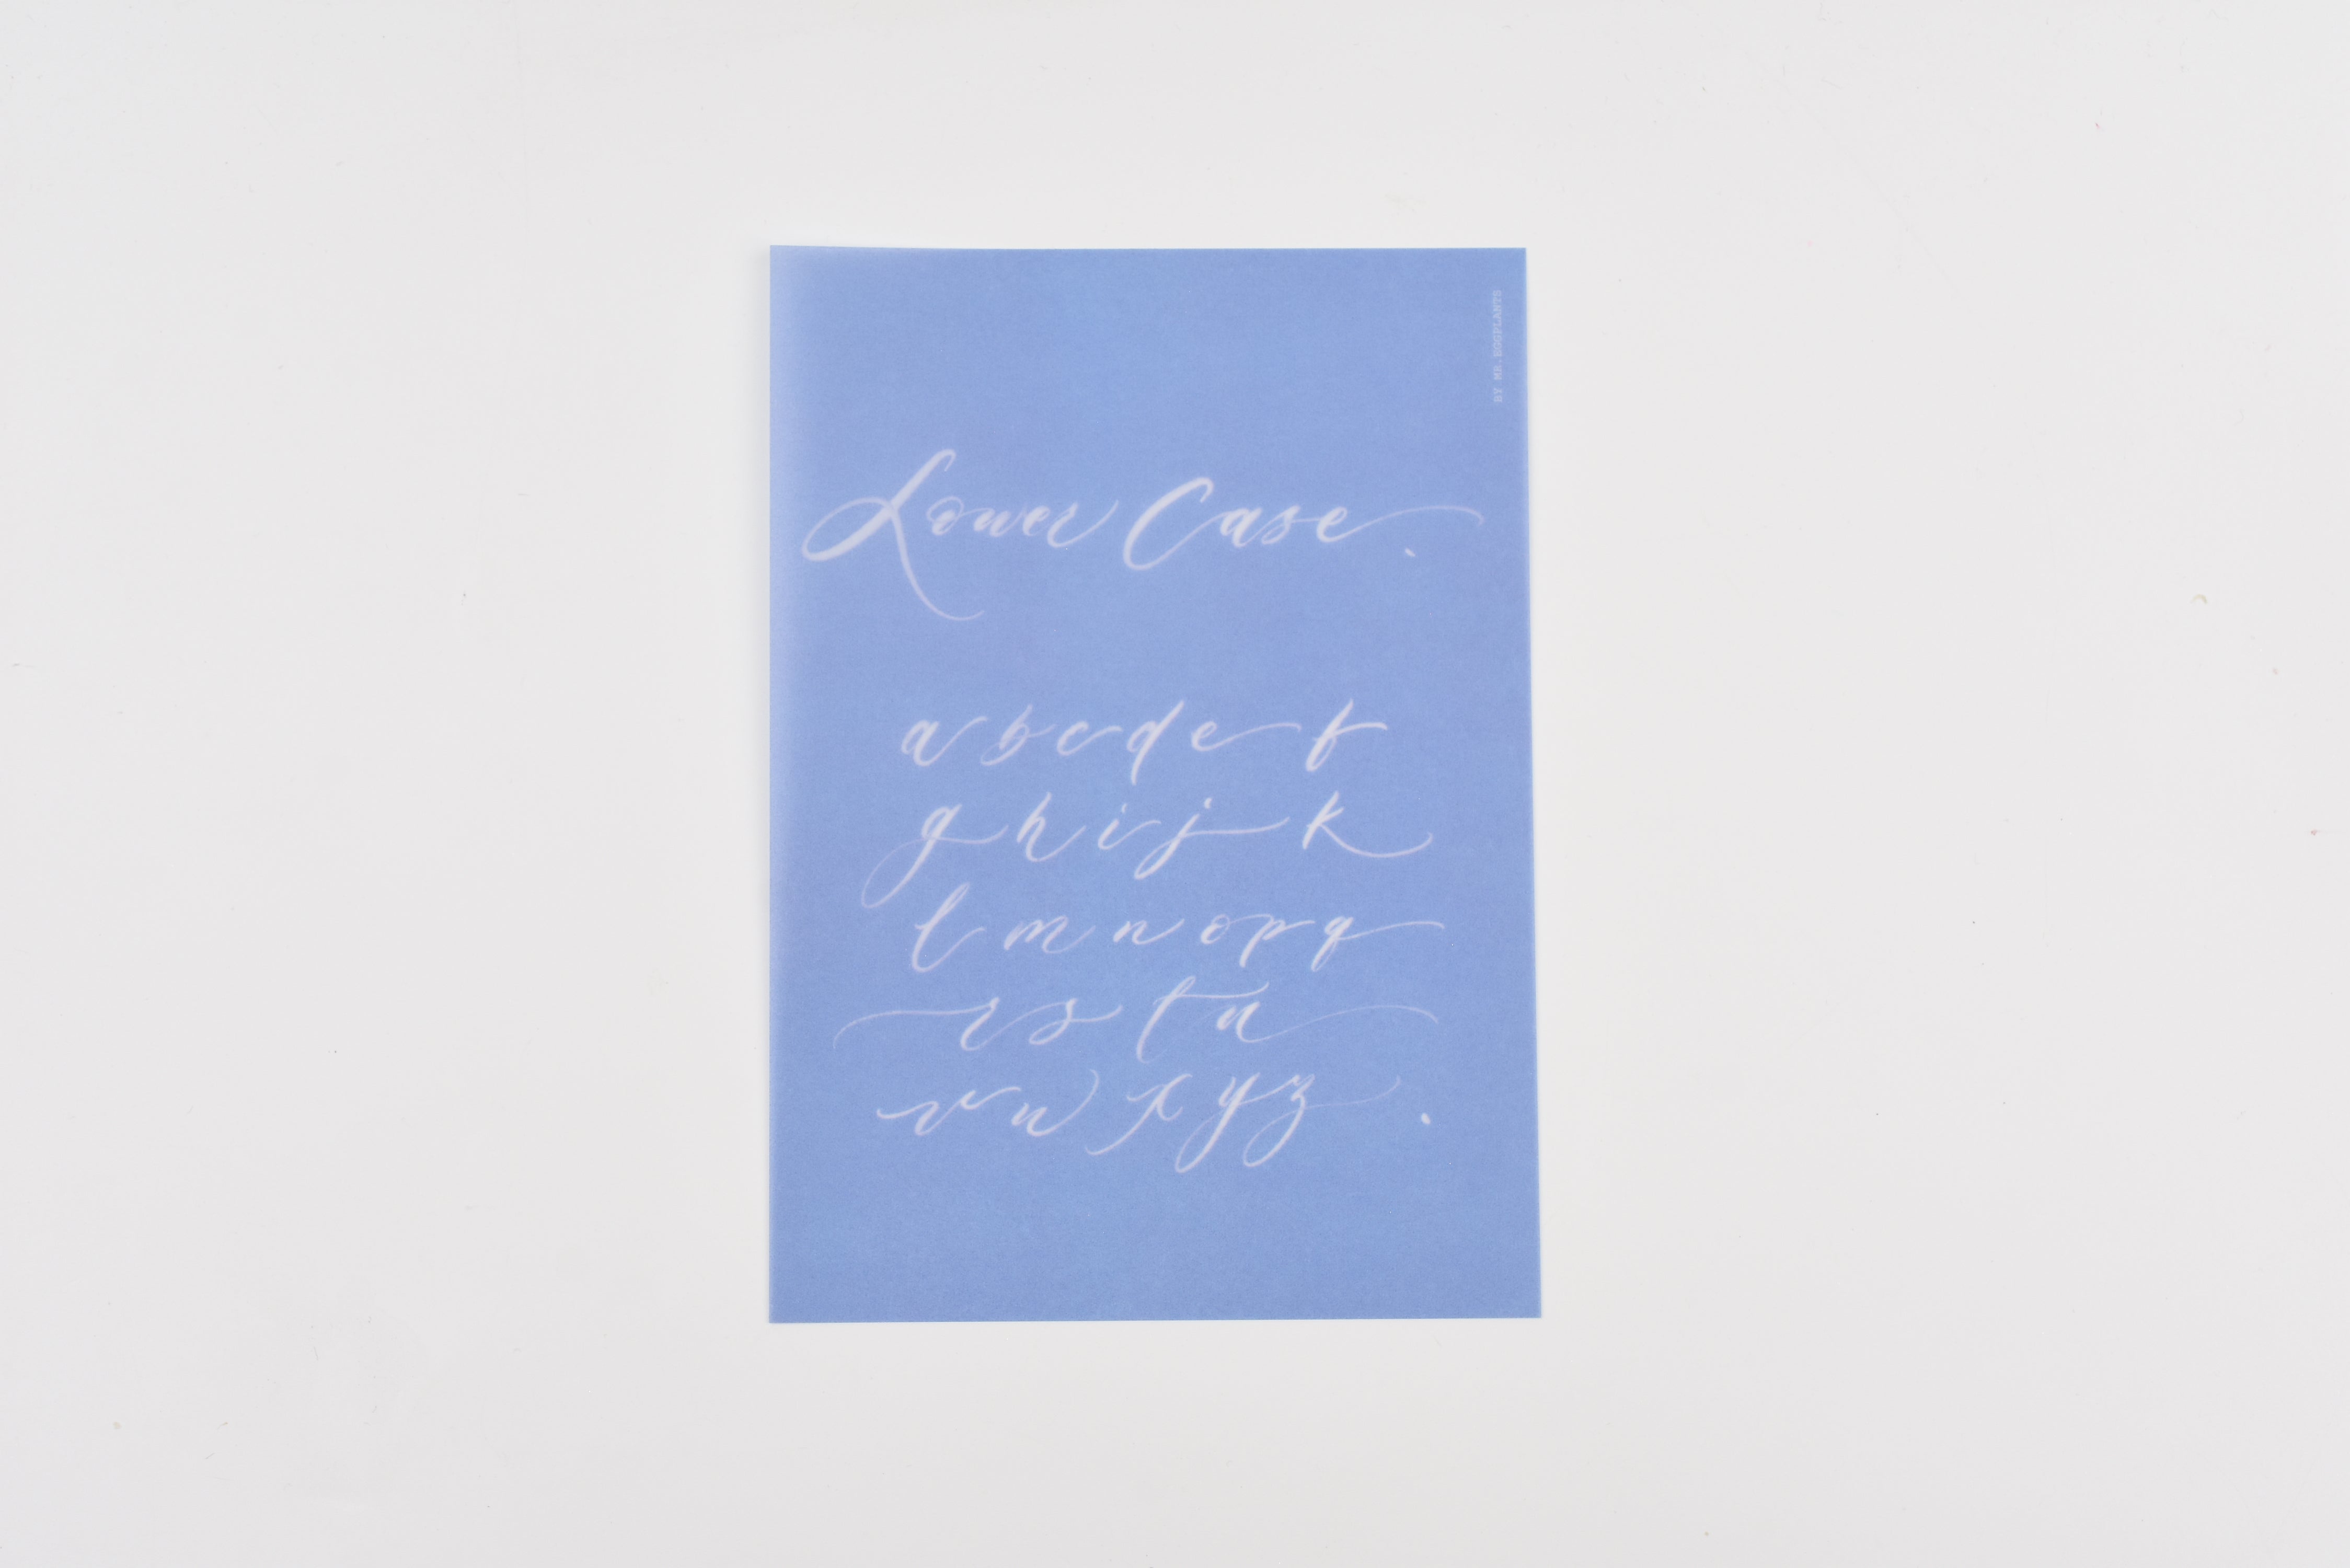 BY MR.HOUPLANTS
Lower Case.
a b c d e f
g h i j k
l m n o p q
r s t u
v w x y z .